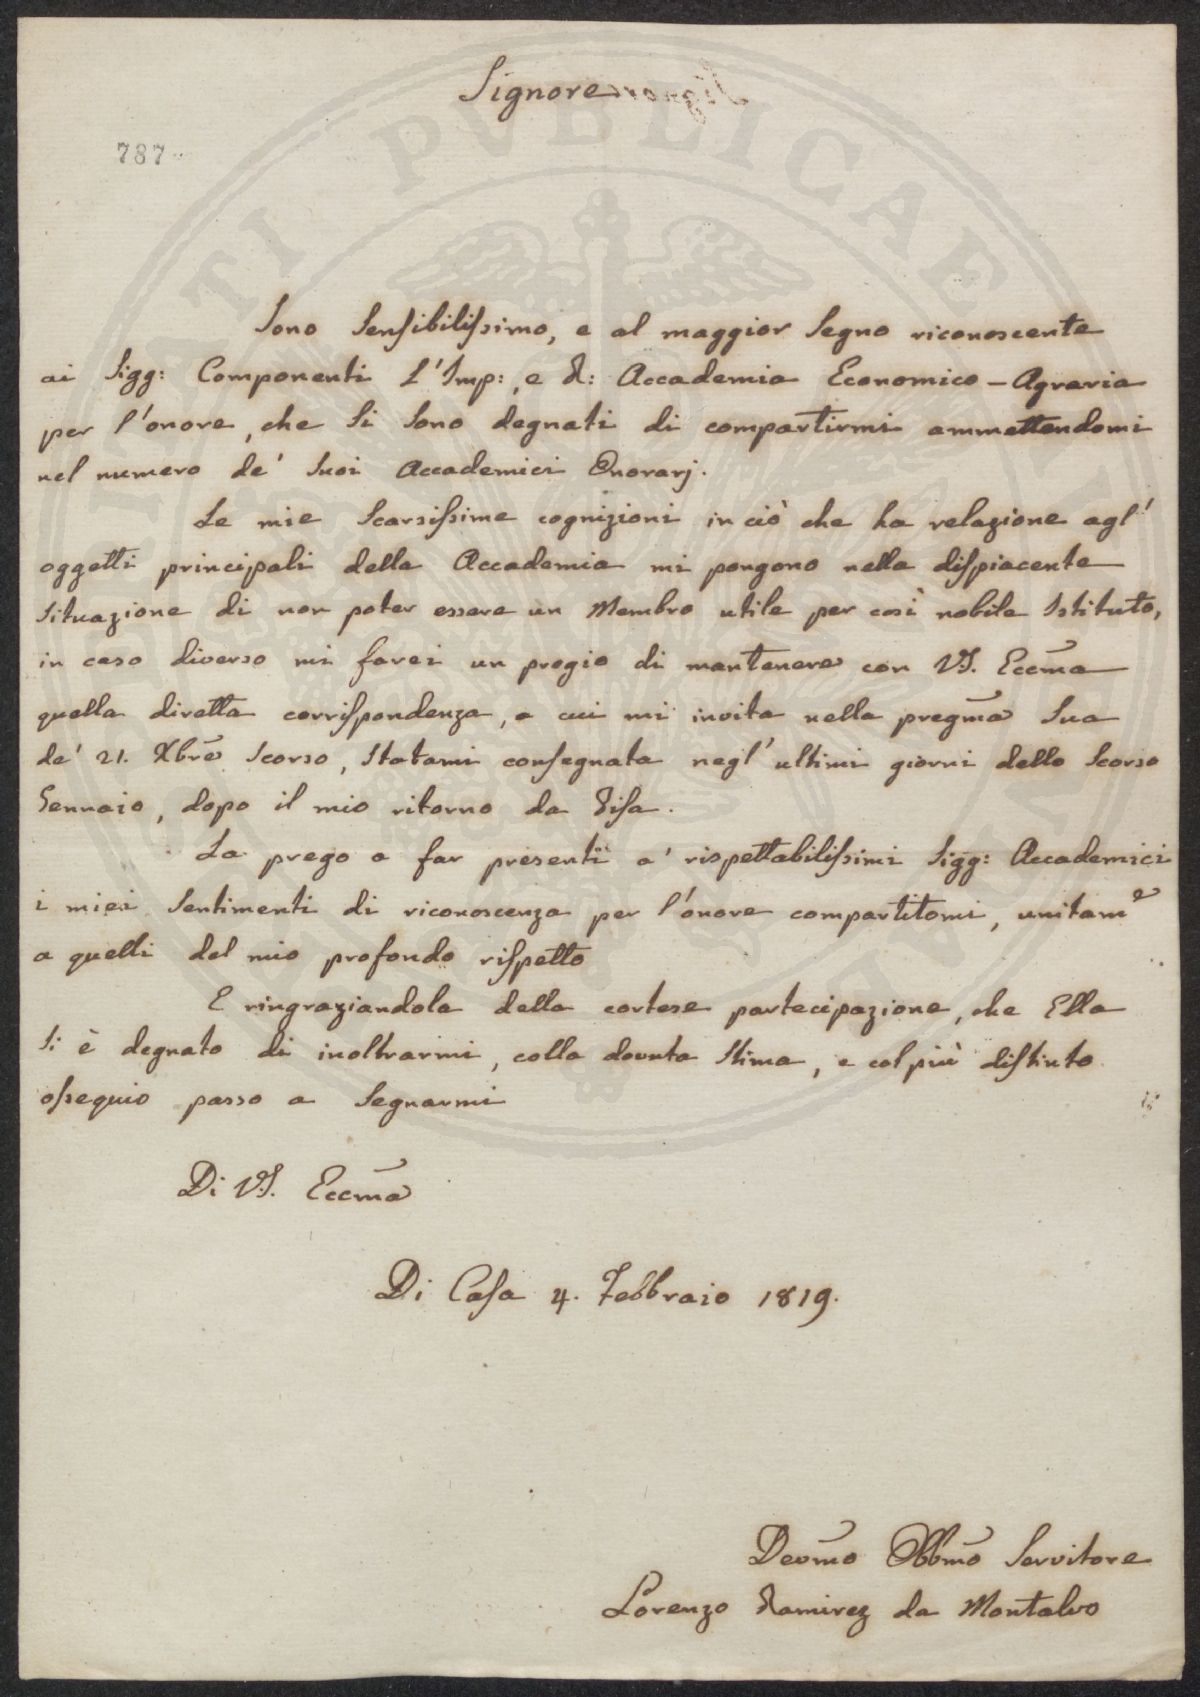 Signore
787
Sono Sensibilissimo, e al maggior Segno riconoscente
ai Sigg: Componenti L'Imp:, e R: Accademia Economico-Agraria
per l'onore, che Si Sono degnati di compartirmi ammettendomi
nel numero de' Suoi Accademici Onorarj.
Le mie Scarsissime cognizioni in ciò che ha relazione agl'
oggetti principali della Accademia mi pongono nella dispiacente
Situazione di non poter essere un Membro utile per così nobile Istituto,
in caso diverso mi farei un pregio di mantenere con V.S. Eccma
quella diretta corrispondenza, a cui mi invita nella pregma Sua
de' 21. Xbre Scorso, Statami consegnata negl'ultimi giorni dello Scorso
Gennaio, dopo il mio ritorno da Pisa.
La prego a far presenti a' rispettabilissimi Sigg: Accademici
i miei Sentimenti di riconoscenza per l'onore compartitomi, unitame
a quelli del mio profondo rispetto
E ringraziandola della cortese partecipazione, che Ella
Si è degnato di inoltrarmi, colla dovuta Stima, e col più distinto
ossequio passo a Segnarmi
Di V.S. Eccma
Di Casa 4. Febbraio 1819.
Devmo Obbmo Servitore
Lorenzo Ramirez da Montalvo
TI PVBLICAE